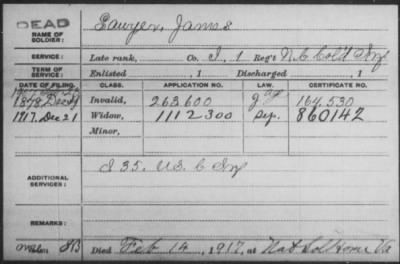 DEAD
NAME OF SOLDIER: Sawyer, James
SERVICE: Late rank, Co. I, 1 Reg't N.C. Col'd Inf
TERM OF SERVICE: Enlisted , 1 Discharged , 1
DATE OF FILING. CLASS. APPLICATION NO. LAW. CERTIFICATE NO.
1878 Dec Invalid, 263.600 164.530
1917. Dec 21 Widow, 1112300 860142
Minor,
ADDITIONAL SERVICES: I 35. U.S. C Inf
REMARKS:
Died Feb 14, 1917, at Nat Sol Home Va